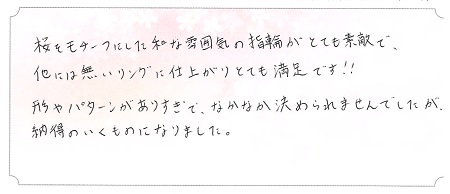 桜をモチーフにした和な雰囲気の指輪がとても素敵で、
他には無いリングに仕上がりとても満足です!!
形やパターンがありすぎて、なかなか決められませんでしたが、
納得のいくものになりました。